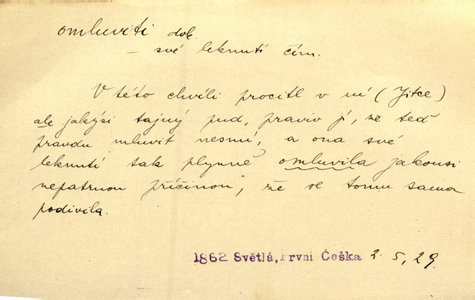 omluviti dok
– své leknutí čím.
V této chvíli procitl v ní (Jitce)
ale jakýsi tajný pud, pravív jí, že teď
pravdu mluvit nesmí, a ona své
leknutí tak plynně omluvila jakousi
nepatrnou příčinou, že se tomu sama
podivila.
1862 Světlá, První Češka 2. 5, 29.